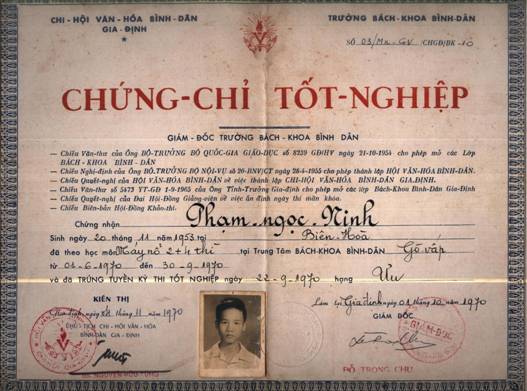 CHI - HỘI VĂN - HÓA BÌNH - DÂN
GIA - ĐỊNH
TRƯỜNG BÁCH - KHOA BÌNH - DÂN
SỐ 03/Mn-GV /CHGĐ/BK-10
CHỨNG-CHỈ TỐT-NGHIỆP
GIÁM - ĐỐC TRƯỜNG BÁCH - KHOA BÌNH DÂN
— Chiếu Văn-thư của Ông BỘ-TRƯỞNG BỘ QUỐC-GIA GIÁO-DỤC số 8239 GD/HV ngày 21-10-1954 cho phép mở các Lớp
BÁCH - KHOA BÌNH - DÂN
— Chiếu Nghị-định của Ông BỘ.TRƯỞNG BỘ NỘI-VỤ số 26-BNV/CT ngày 28-4-1955 cho phép thành lập HỘI VĂN-HÓA BÌNH-DÂN.
— Chiếu Quyết-nghị của HỘI VĂN-HÓA BÌNH-DÂN về việc thành lập CHI-HỘI VĂN-HÓA BÌNH-DÂN GIA.ĐỊNH.
— Chiếu Văn-thư số 5473 VT-GĐ 1-9-1965 của Ông Tỉnh-Trưởng Gia-định cho phép mở các lớp Bách-Khoa Bình-Dân Gia-Định
— Chiếu Quyết-nghị của Đại Hội-Đồng Giảng-viên về việc ấn định thi mãn khóa.
— Chiếu Biên-bản Hội-Đồng Khảo-thí.
Chứng nhận Phạm ngọc Ninh
Sinh ngày 20 tháng 11 năm 1953 tại Biên-Hoà
đã theo học môn Máy nổ 2+4 thì tại Trung Tâm BÁCH-KHOA BÌNH-DÂN Gò vấp
từ 01-6-1970 đến 30-9-1970
và đã TRÚNG TUYỂN KỲ THI TỐT NGHIỆP ngày 22-9-1970 hạng Ưu
KIẾN THỊ
Gia Định, ngày tháng 11 năm 1970
CHỦ - TỊCH CHI - HỘI VĂN - HÓA
BÌNH - DÂN GIA - ĐỊNH
Làm tại Gia định ngày 01 tháng 10 năm 1970
GIÁM ĐỐC
GIÁM-ĐỐC
ĐỖ TRỌNG CHU